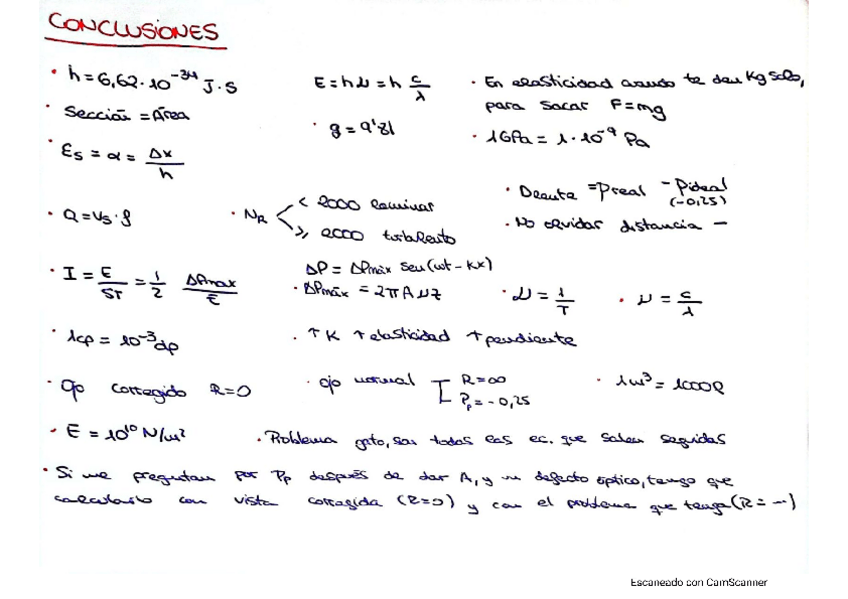 CONCLUSIONES
• h = 6,62·10⁻³⁴ J·s
E = hν = h c/λ
• En elasticidad cuando te dan Kg solo,
para sacar F=mg
• Sección = Área
• g = 9'81
• 1GPa = 1·10⁻⁹ Pa
• Es = α = Δx/h
• Q = Vs·S
• NR < 2000 laminar
≥ 2000 turbulento
• Dcauta = Preal - Pideal
(-0,25)
• No olvidar distancia -
• I = E/ST = 1/2 ΔPmax/Z
ΔP = ΔPmáx sen(ωt - Kx)
• ΔPmáx = 2πAνZ
• ν = 1/T
• ν = c/λ
• 1cp = 10⁻³ dp
• ↑K ↑elasticidad ↑pendiente
• Ojo corregido R=0
• ojo normal R=∞
Pp = -0,25
• 1m³ = 1000l
• E = 10¹⁰ N/m²
• Problema gato, son todas las ec. que salen seguidas
• Si me preguntan por Pp después de dar A, y un defecto óptico, tengo que
calcularlo con vista corregida (R=0) y con el problema que tenga (R = -)
Escaneado con CamScanner